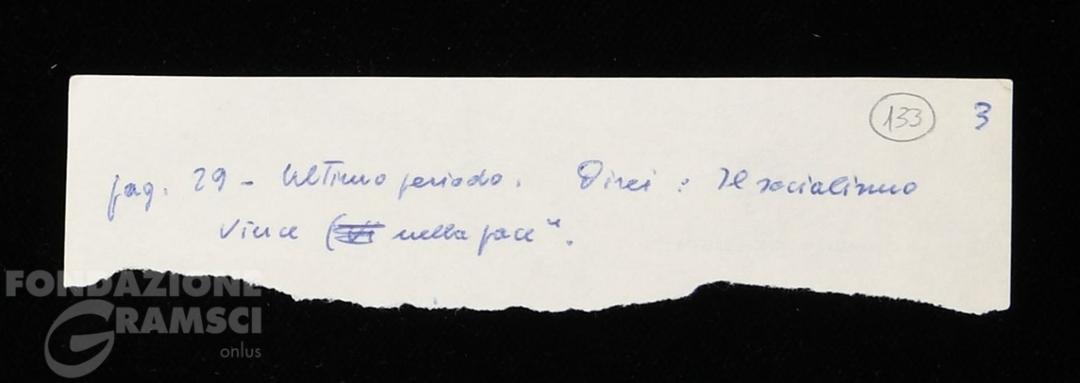 133 3
pag. 29 - Ultimo periodo. Direi : Il socialismo
vince ( nella pace".
FONDAZIONE
GRAMSCI
onlus